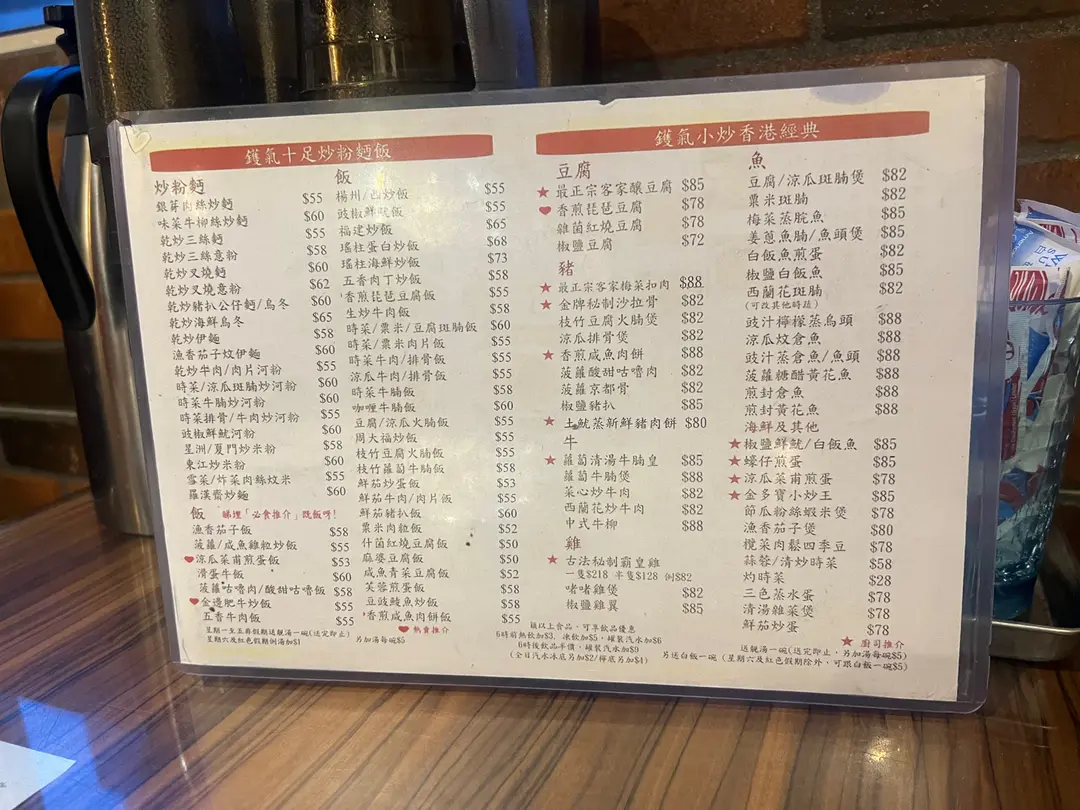 鑊氣十足炒粉麵飯
炒粉麵
銀芽肉絲炒麵 $55
味菜牛柳絲炒麵 $60
乾炒三絲麵 $55
乾炒三絲意粉 $58
乾炒叉燒麵 $60
乾炒叉燒意粉 $62
乾炒豬扒公仔麵/烏冬 $60
乾炒海鮮烏冬 $65
乾炒伊麵 $60
漁香茄子炆伊麵 $60
乾炒牛肉/肉片河粉 $55
時菜/涼瓜斑腩炒河粉 $60
時菜牛腩炒河粉 $60
時菜排骨/牛肉炒河粉 $55
豉椒鮮魷河粉 $60
星洲/厦門炒米粉 $58
東江炒米粉 $60
雪菜/炸菜肉絲炆米 $55
羅漢齋炒麵 $60
飯 睇埋「必食推介」既飯呀!
漁香茄子飯 $58
菠蘿/咸魚雞粒炒飯 $55
涼瓜菜甫煎蛋飯 $53
滑蛋牛飯 $60
菠蘿咕嚕肉/酸甜咕嚕飯 $58
金邊肥牛炒飯 $55
五香牛肉飯 $55
星期一至五非假期送靚湯一碗(送完即止)
星期六及紅色假期例湯加$1
另加湯每碗$5
飯
楊州/西炒飯 $55
豉椒鮮魷飯 $55
福建炒飯 $65
瑤柱蛋白炒飯 $68
瑤柱海鮮炒飯 $73
五香肉丁炒飯 $58
香煎琵琶豆腐飯 $55
生炒牛肉飯 $58
時菜/粟米/豆腐斑腩飯 $60
時菜/粟米肉片飯 $55
時菜牛肉/排骨飯 $55
涼瓜牛肉/排骨飯 $55
時菜牛腩飯 $58
咖喱牛腩飯 $60
豆腐/涼瓜火腩飯 $55
周大福炒飯 $55
枝竹豆腐火腩飯 $55
枝竹蘿蔔牛腩飯 $58
鮮茄炒蛋飯 $53
鮮茄牛肉/肉片飯 $55
鮮茄豬扒飯 $60
粟米肉粒飯 $52
什菌紅燒豆腐飯 $50
麻婆豆腐飯 $50
咸魚青菜豆腐飯 $52
芙蓉煎蛋飯 $58
豆豉鯪魚炒飯 $58
香煎咸魚肉餅飯 $55
熱賣推介
鑊氣小炒香港經典
豆腐
最正宗客家釀豆腐 $85
香煎琵琶豆腐 $78
雜菌紅燒豆腐 $78
椒鹽豆腐 $72
豬
最正宗客家梅菜扣肉 $88
金牌秘制沙拉骨 $82
枝竹豆腐火腩煲 $82
涼瓜排骨煲 $82
香煎咸魚肉餅 $88
菠蘿酸甜咕嚕肉 $82
菠蘿京都骨 $82
椒鹽豬扒 $85
土魷蒸新鮮豬肉餅 $80
牛
蘿蔔清湯牛腩皇 $85
蘿蔔牛腩煲 $88
菜心炒牛肉 $82
西蘭花炒牛肉 $82
中式牛柳 $88
雞
古法秘制霸皇雞
一隻$218 半隻$128 例$82
啫啫雞煲 $82
椒鹽雞翼 $85
魚
豆腐/涼瓜斑腩煲 $82
粟米斑腩 $82
梅菜蒸脘魚 $85
姜蔥魚腩/魚頭煲 $85
白飯魚煎蛋 $82
椒鹽白飯魚 $85
西蘭花斑腩 $82
(可改其他時蔬)
豉汁檸檬蒸烏頭 $88
涼瓜炆倉魚 $88
豉汁蒸倉魚/魚頭 $88
菠蘿糖醋黃花魚 $88
煎封倉魚 $88
煎封黃花魚 $88
海鮮及其他
椒鹽鮮魷/白飯魚 $85
蠔仔煎蛋 $85
涼瓜菜甫煎蛋 $78
金多寶小炒王 $85
節瓜粉絲蝦米煲 $78
漁香茄子煲 $80
欖菜肉鬆四季豆 $78
蒜蓉/清炒時菜 $58
灼時菜 $28
三色蒸水蛋 $78
清湯雜菜煲 $78
鮮茄炒蛋 $78
廚司推介
類以上食品，可享飲品優惠
6時前熱飲加$3，凍飲加$5，罐裝汽水加$6
6時後飲品半價，罐裝汽水加$9
(全日汽水冰底另加$2/檸底另加$4)
送靚湯一碗(送完即止，另加湯每碗$5)
另送白飯一碗 (星期六及紅色假期除外，可跟白飯一碗$5)